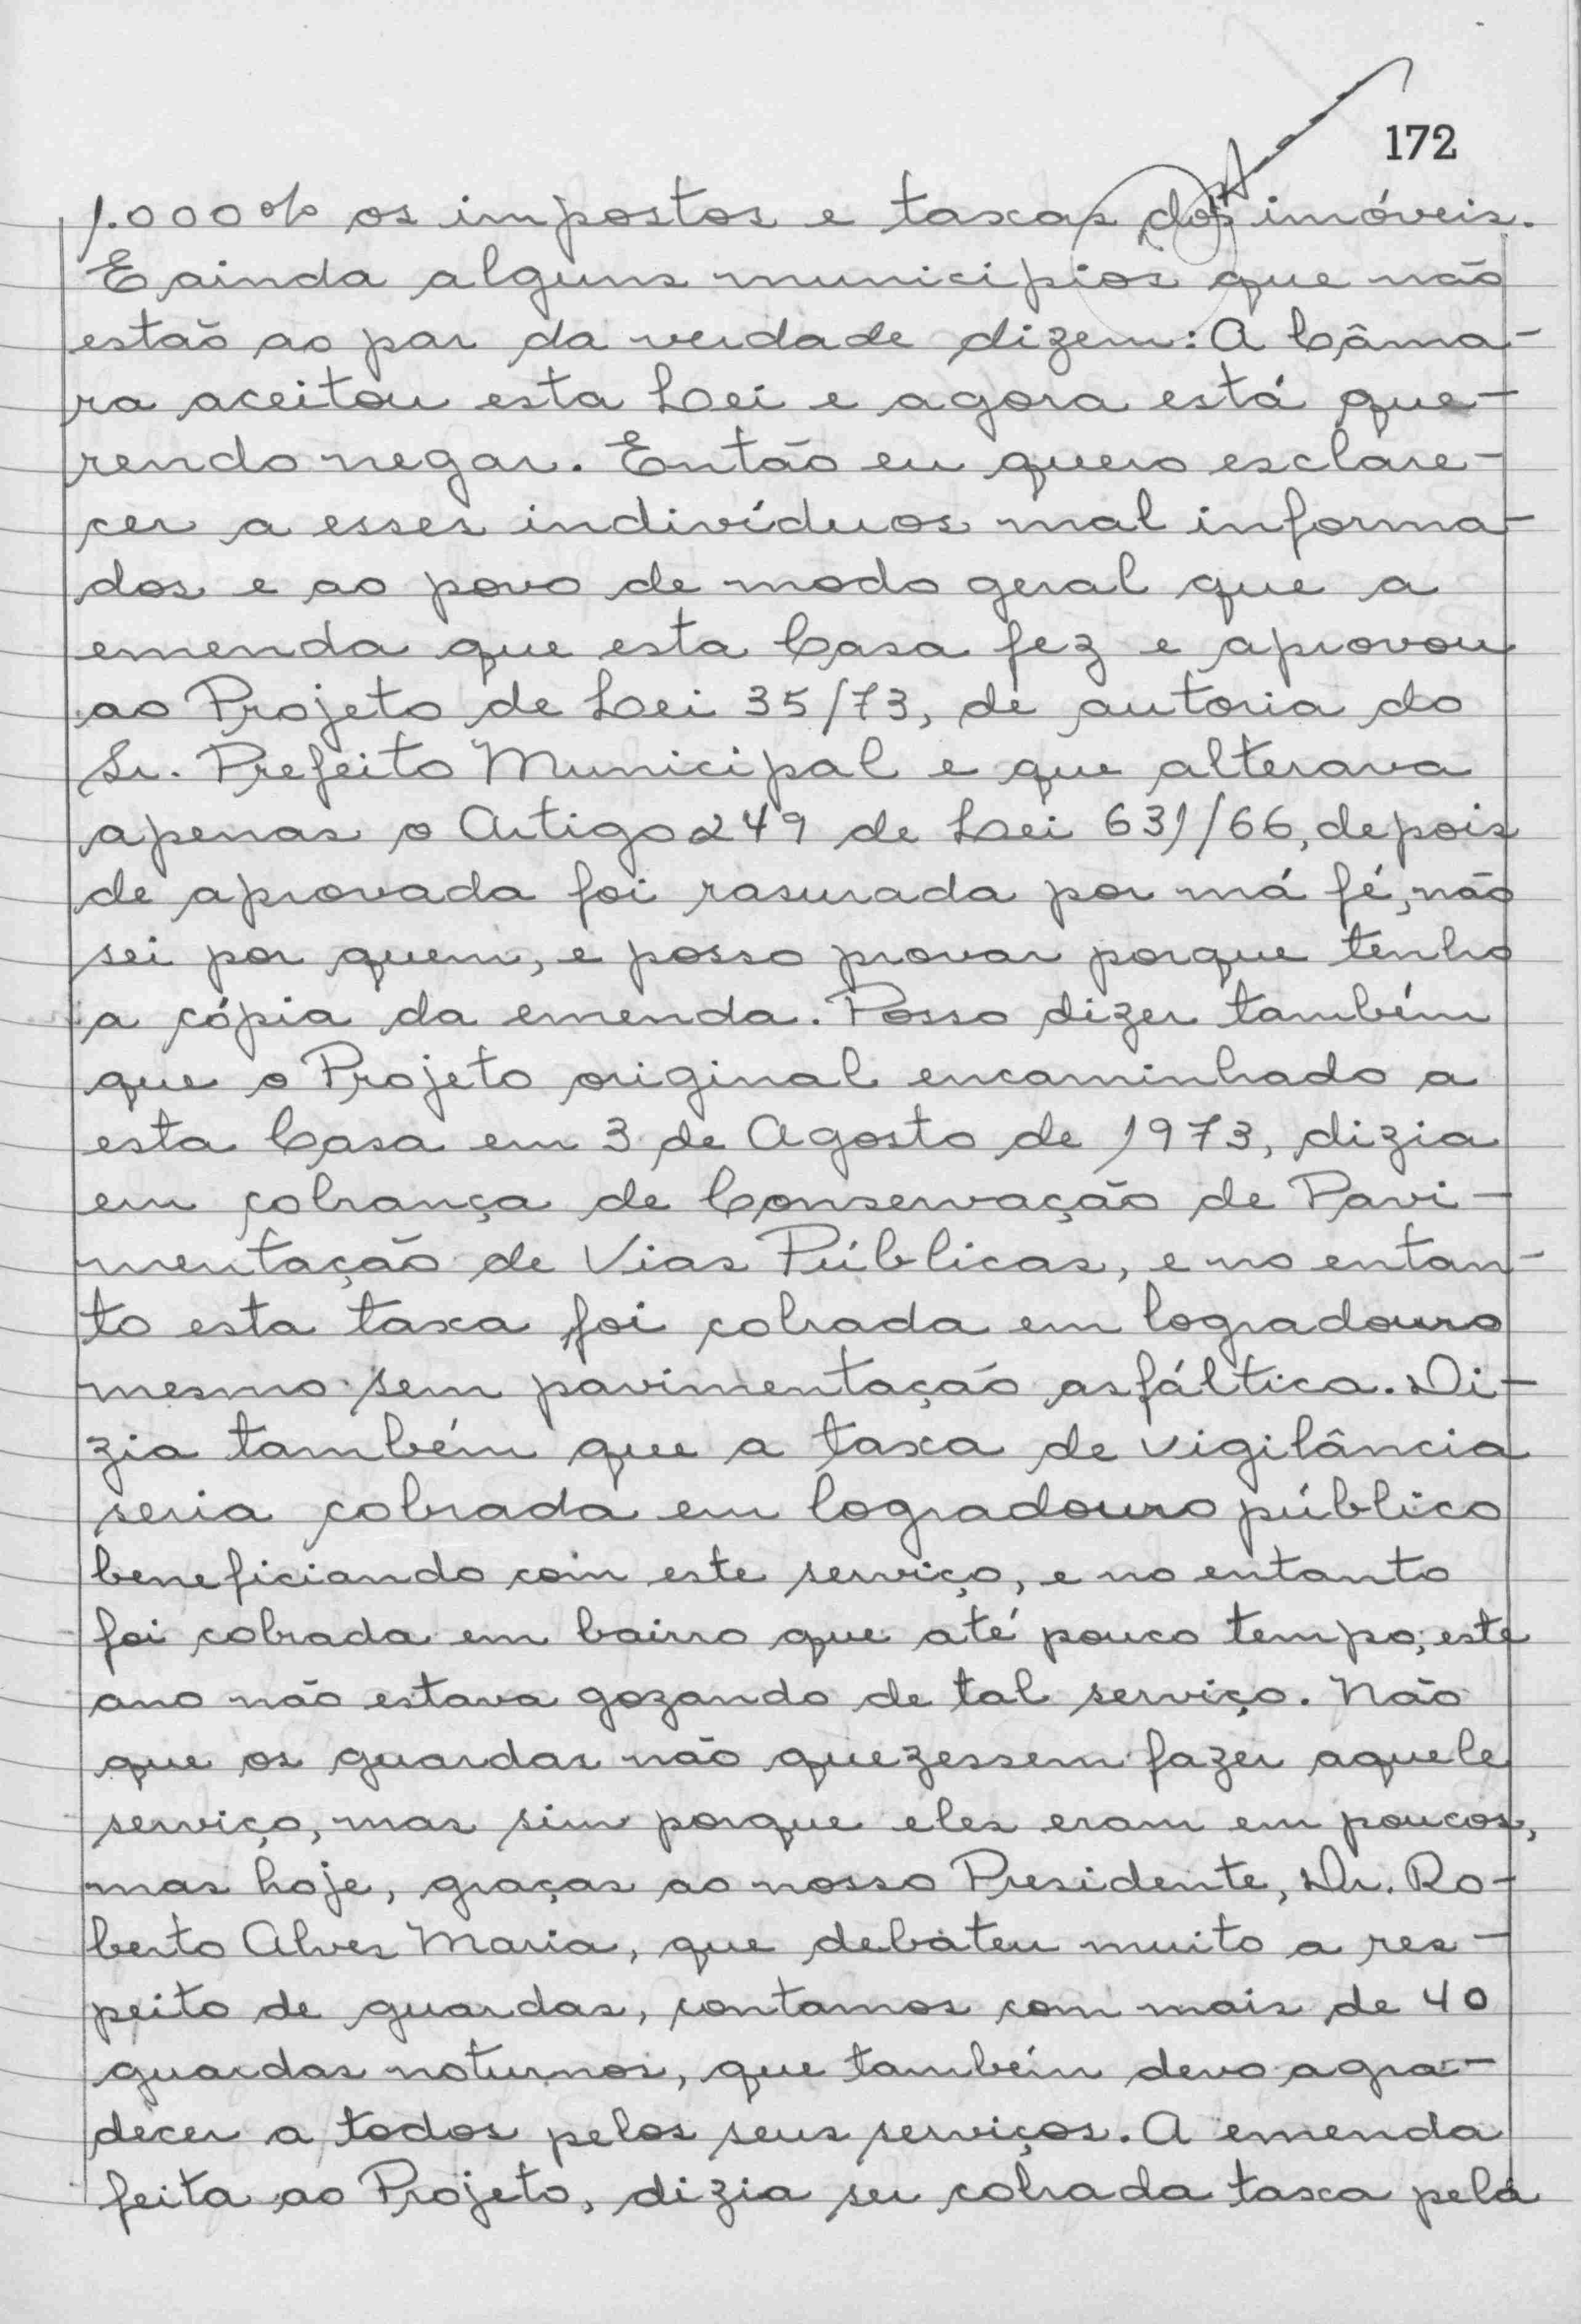 172
1.000% os impostos e taxas dos imóveis.
E ainda alguns municipios que não
estão ao par da verdade dizem: A Câma-
ra aceitou esta Lei e agora está que-
rendo negar. Então eu quero esclare-
cer a esses indivíduos mal informa-
dos e ao povo de modo geral que a
emenda que esta Casa fez e aprovou
ao Projeto de Lei 35/73, de autoria do
Sr. Prefeito Municipal e que alterava
apenas o Artigo 249 de Lei 631/66, depois
de aprovada foi rasurada por má fé, não
sei por quem, e posso provar porque tenho
a cópia da emenda. Posso dizer também
que o Projeto original encaminhado a
esta Casa em 3 de Agosto de 1973, dizia
em cobrança de Conservação de Pavi-
mentação de Vias Públicas, e no entan-
to esta taxa foi cobrada em logradouro
mesmo sem pavimentação asfáltica. Di-
zia também que a taxa de vigilância
seria cobrada em logradouro público
beneficiando com este serviço, e no entanto
foi cobrada em bairro que até pouco tempo, este
ano não estava gozando de tal serviço. Não
que os guardas não quezessem fazer aquele
serviço, mas sim porque eles eram em poucos,
mas hoje, graças ao nosso Presidente, Dr. Ro-
berto Alves Maria, que debateu muito a res-
peito de guardas, contamos com mais de 40
guardas noturnos, que também devo agra-
decer a todos pelos seus serviços. A emenda
feita ao Projeto, dizia ser cobrada taxa pela